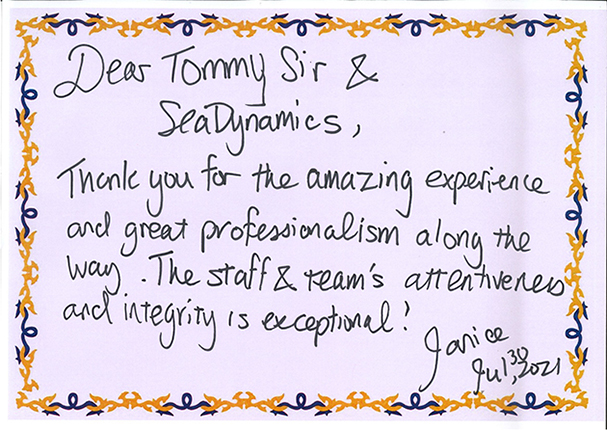 Dear Tommy Sir &
SeaDynamics,
Thank you for the amazing experience
and great professionalism along the
way. The staff & team's attentiveness
and integrity is exceptional!
Janice
Jul 30, 2021